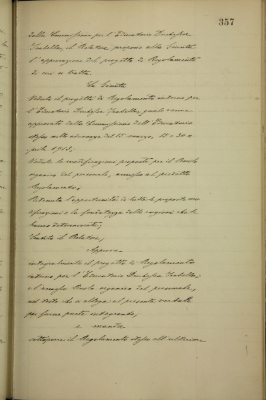 357
dalla Commissione per l'Educatorio Duchessa
Isabella, il Relatore propone alla Giunta
l'approvazione del progetto di Regolamento
di cui si tratta.
La Giunta
Veduto il progetto di Regolamento interno per
l'Educatorio Duchessa Isabella, quale venne
approvato dalla Commissione dell'Educatorio
stesso nelle adunanze del 15 marzo, 12 e 30 a-
prile 1913;
Vedute le modificazioni proposte per il Ruolo
organico del personale, annesso al predetto
Regolamento;
Ritenuta l'opportunità di tutte le proposte mo-
dificazioni e la fondatezza delle ragioni che le
hanno determinate;
Udito il Relatore,
Approva
integralmente il progetto di Regolamento
interno per l'Educatorio Duchessa Isabella,
e l'annesso Ruolo organico del personale,
nel testo che si allega al presente verbale
per farne parte integrante,
e manda
sottoporre il Regolamento stesso all'ulteriore